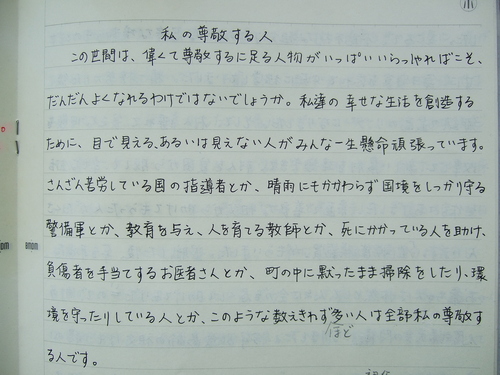 小
私の尊敬する人
この世間は、偉くて尊敬するに足る人物がいっぱいいらっしゃればこそ、
だんだんよくなれるわけではないでしょうか。私達の幸せな生活を創造する
ために、目で見える、あるいは見えない人がみんな一生懸命頑張っています。
さんざん苦労している国の指導者とか、晴雨にもかかわらず国境をしっかり守る
警備軍とか、教育を与え、人を育てる教師とか、死にかかっている人を助け、
負傷者を手当てするお医者さんとか、町の中に黙ったまま掃除をしたり、環
境を守ったりしている人とか、このような数えきれず多い人は全部私の尊敬す
ほど
る人です。